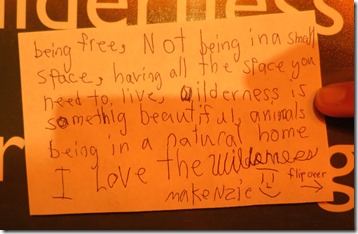 ilderness
being free, Not being in a small
space, having all the space you
need to live, wilderness is
something beautiful, animals
being in a natural home
I Love the Wilderness
makenzie
flip over